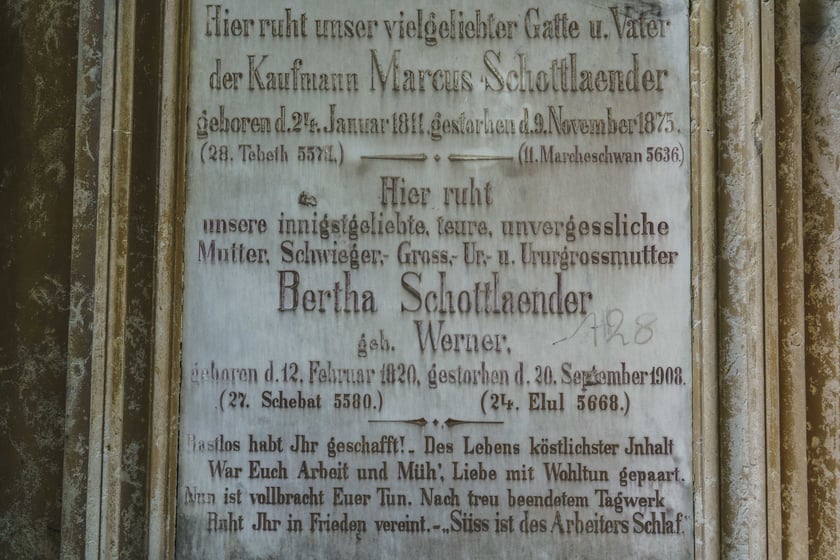 Hier ruht unser vielgeliebter Gatte u. Vater
der Kaufmann Marcus Schottlaender
geboren d. 24. Januar 1811, gestorben d. 9. November 1875.
(28. Tebeth 5571.) (11. Marcheschwan 5636.)
Hier ruht
unsere innigstgeliebte, teure, unvergessliche
Mutter, Schwieger,- Gross,- Ur,- u. Ururgrossmutter
Bertha Schottlaender
geb. Werner,
H28
geboren d. 12. Februar 1820, gestorben d. 20. September 1908.
(27. Schebat 5580.) (24. Elul 5668.)
Rastlos habt Jhr geschafft! - Des Lebens köstlichster Jnhalt
War Euch Arbeit und Müh', Liebe mit Wohltun gepaart.
Nun ist vollbracht Euer Tun. Nach treu beendetem Tagwerk
Ruht Jhr in Frieden vereint. - „Süss ist des Arbeiters Schlaf."